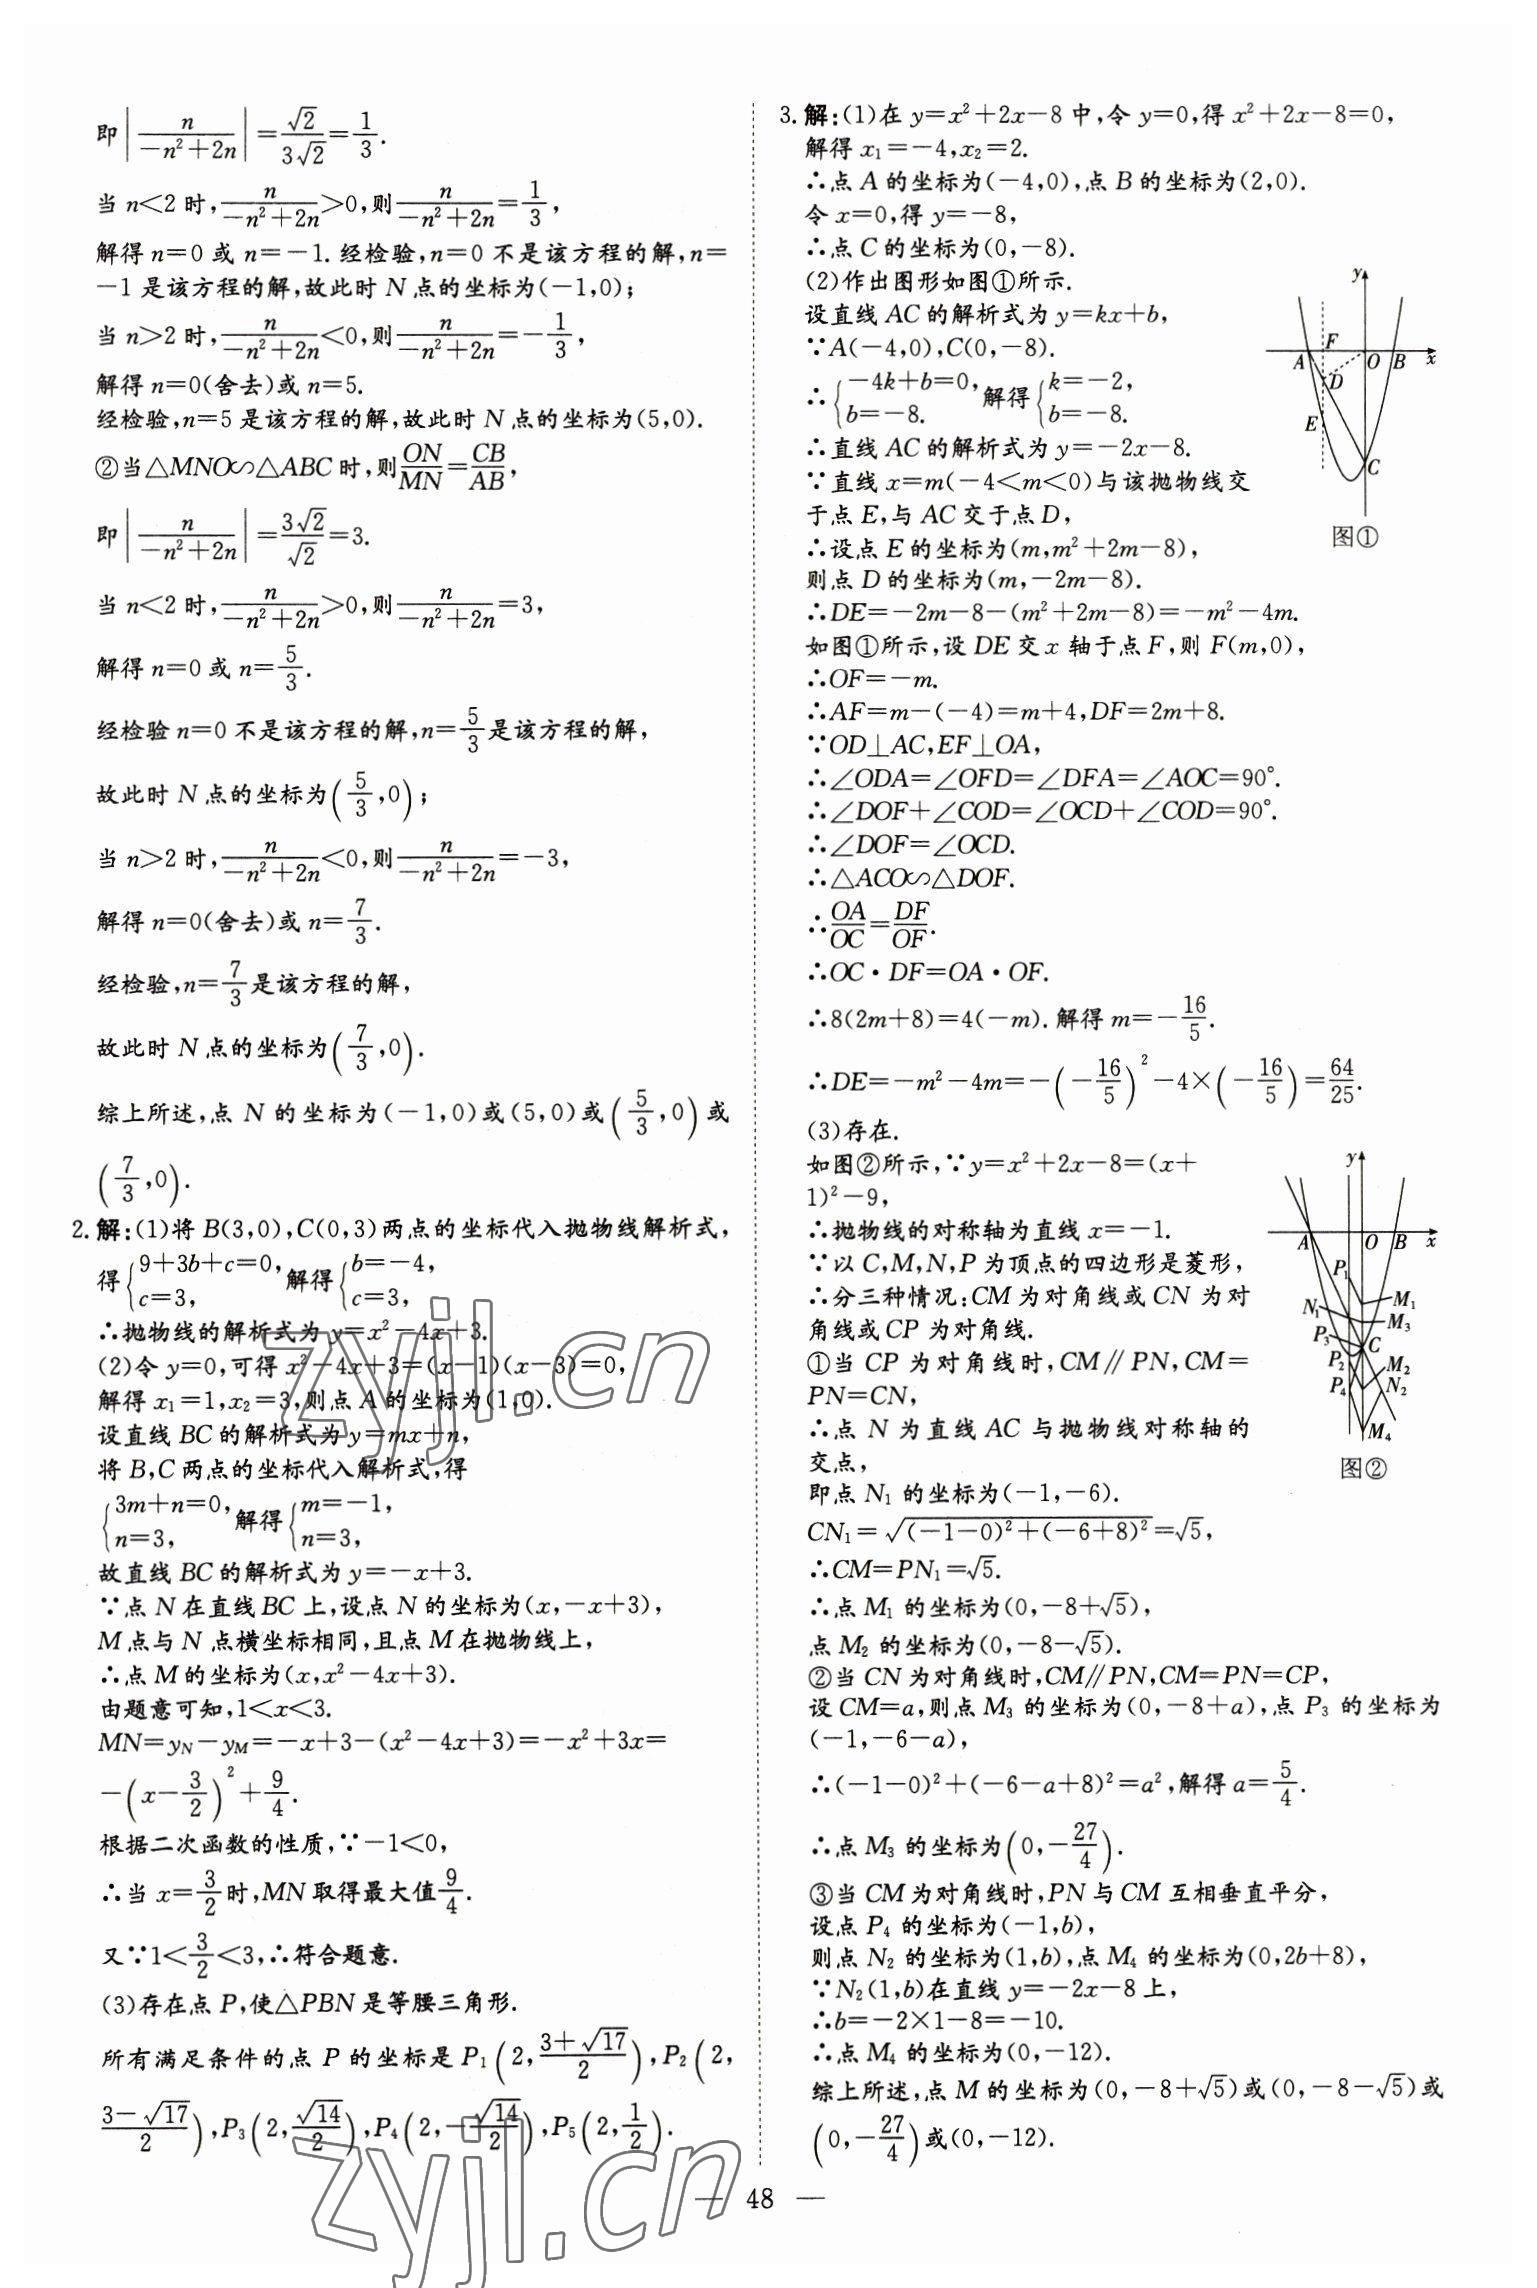 即|n/(-n²+2n)|=√2/(3√2)=1/3.
当 n<2 时,n/(-n²+2n)>0,则n/(-n²+2n)=1/3,
解得 n=0 或 n=-1. 经检验,n=0 不是该方程的解,n=
-1 是该方程的解,故此时 N 点的坐标为(-1,0);
当 n>2 时,n/(-n²+2n)<0,则n/(-n²+2n)=-1/3,
解得 n=0(舍去)或 n=5.
经检验,n=5 是该方程的解,故此时 N 点的坐标为(5,0).
②当△MNO∽△ABC 时,则ON/MN=CB/AB,
即|n/(-n²+2n)|=3√2/√2=3.
当 n<2 时,n/(-n²+2n)>0,则n/(-n²+2n)=3,
解得 n=0 或 n=5/3.
经检验 n=0 不是该方程的解,n=5/3是该方程的解,
故此时 N 点的坐标为(5/3,0);
当 n>2 时,n/(-n²+2n)<0,则n/(-n²+2n)=-3,
解得 n=0(舍去)或 n=7/3.
经检验,n=7/3是该方程的解,
故此时 N 点的坐标为(7/3,0).
综上所述,点 N 的坐标为(-1,0)或(5,0)或(5/3,0)或
(7/3,0).
2. 解:(1)将 B(3,0),C(0,3)两点的坐标代入抛物线解析式,
得{9+3b+c=0, c=3, 解得{b=-4, c=3,
∴抛物线的解析式为 y=x²-4x+3.
(2)令 y=0,可得 x²-4x+3=(x-1)(x-3)=0,
解得 x₁=1,x₂=3,则点 A 的坐标为(1,0).
设直线 BC 的解析式为 y=mx+n,
将 B,C 两点的坐标代入解析式,得
{3m+n=0, n=3, 解得{m=-1, n=3,
故直线 BC 的解析式为 y=-x+3.
∵点 N 在直线 BC 上,设点 N 的坐标为(x,-x+3),
M 点与 N 点横坐标相同,且点 M 在抛物线上,
∴点 M 的坐标为(x,x²-4x+3).
由题意可知,1<x<3.
MN=y_N-y_M=-x+3-(x²-4x+3)=-x²+3x=
-(x-3/2)²+9/4.
根据二次函数的性质,∵-1<0,
∴当 x=3/2时,MN 取得最大值9/4.
又∵1<3/2<3,∴符合题意.
(3)存在点 P,使△PBN 是等腰三角形.
所有满足条件的点 P 的坐标是 P₁(2,(3+√17)/2),P₂(2,
(3-√17)/2),P₃(2,√14/2),P₄(2,-√14/2),P₅(2,1/2).
3. 解:(1)在 y=x²+2x-8 中,令 y=0,得 x²+2x-8=0,
解得 x₁=-4,x₂=2.
∴点 A 的坐标为(-4,0),点 B 的坐标为(2,0).
令 x=0,得 y=-8,
∴点 C 的坐标为(0,-8).
(2)作出图形如图①所示.
设直线 AC 的解析式为 y=kx+b,
∵A(-4,0),C(0,-8).
∴{-4k+b=0, b=-8. 解得{k=-2, b=-8.
∴直线 AC 的解析式为 y=-2x-8.
∵直线 x=m(-4<m<0)与该抛物线交
于点 E,与 AC 交于点 D,
∴设点 E 的坐标为(m,m²+2m-8),
则点 D 的坐标为(m,-2m-8).
∴DE=-2m-8-(m²+2m-8)=-m²-4m.
如图①所示,设 DE 交 x 轴于点 F,则 F(m,0),
∴OF=-m.
∴AF=m-(-4)=m+4,DF=2m+8.
∵OD⊥AC,EF⊥OA,
∴∠ODA=∠OFD=∠DFA=∠AOC=90°.
∴∠DOF+∠COD=∠OCD+∠COD=90°.
∴∠DOF=∠OCD.
∴△ACO∽△DOF.
∴OA/OC=DF/OF.
∴OC·DF=OA·OF.
∴8(2m+8)=4(-m). 解得 m=-16/5.
∴DE=-m²-4m=-(-16/5)²-4×(-16/5)=64/25.
(3)存在.
如图②所示,∵y=x²+2x-8=(x+
1)²-9,
∴抛物线的对称轴为直线 x=-1.
∵以 C,M,N,P 为顶点的四边形是菱形,
∴分三种情况:CM 为对角线或 CN 为对
角线或 CP 为对角线.
①当 CP 为对角线时,CM∥PN,CM=
PN=CN,
∴点 N 为直线 AC 与抛物线对称轴的
交点,
即点 N₁ 的坐标为(-1,-6).
CN₁=√((-1-0)²+(-6+8)²)=√5,
∴CM=PN₁=√5.
∴点 M₁ 的坐标为(0,-8+√5),
点 M₂ 的坐标为(0,-8-√5).
②当 CN 为对角线时,CM∥PN,CM=PN=CP,
设 CM=a,则点 M₃ 的坐标为(0,-8+a),点 P₃ 的坐标为
(-1,-6-a),
∴(-1-0)²+(-6-a+8)²=a²,解得 a=5/4.
∴点 M₃ 的坐标为(0,-27/4).
③当 CM 为对角线时,PN 与 CM 互相垂直平分,
设点 P₄ 的坐标为(-1,b),
则点 N₂ 的坐标为(1,b),点 M₄ 的坐标为(0,2b+8),
∵N₂(1,b)在直线 y=-2x-8 上,
∴b=-2×1-8=-10.
∴点 M₄ 的坐标为(0,-12).
综上所述,点 M 的坐标为(0,-8+√5)或(0,-8-√5)或
(0,-27/4)或(0,-12).
y
F
A
O
B
x
D
E
C
图①
y
A
O
B
x
P₁
M₁
N₁
M₃
P₃
C
P₂
M₂
P₄
N₂
M₄
图②
zyjl.cn
zyjl.cn
— 48 —